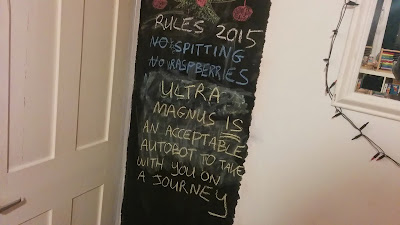 RULES 2015
NO SPITTING
NO RASPBERRIES
ULTRA
MAGNUS IS
AN ACCEPTABLE
AUTOBOT TO TAKE
WITH YOU ON
A JOURNEY